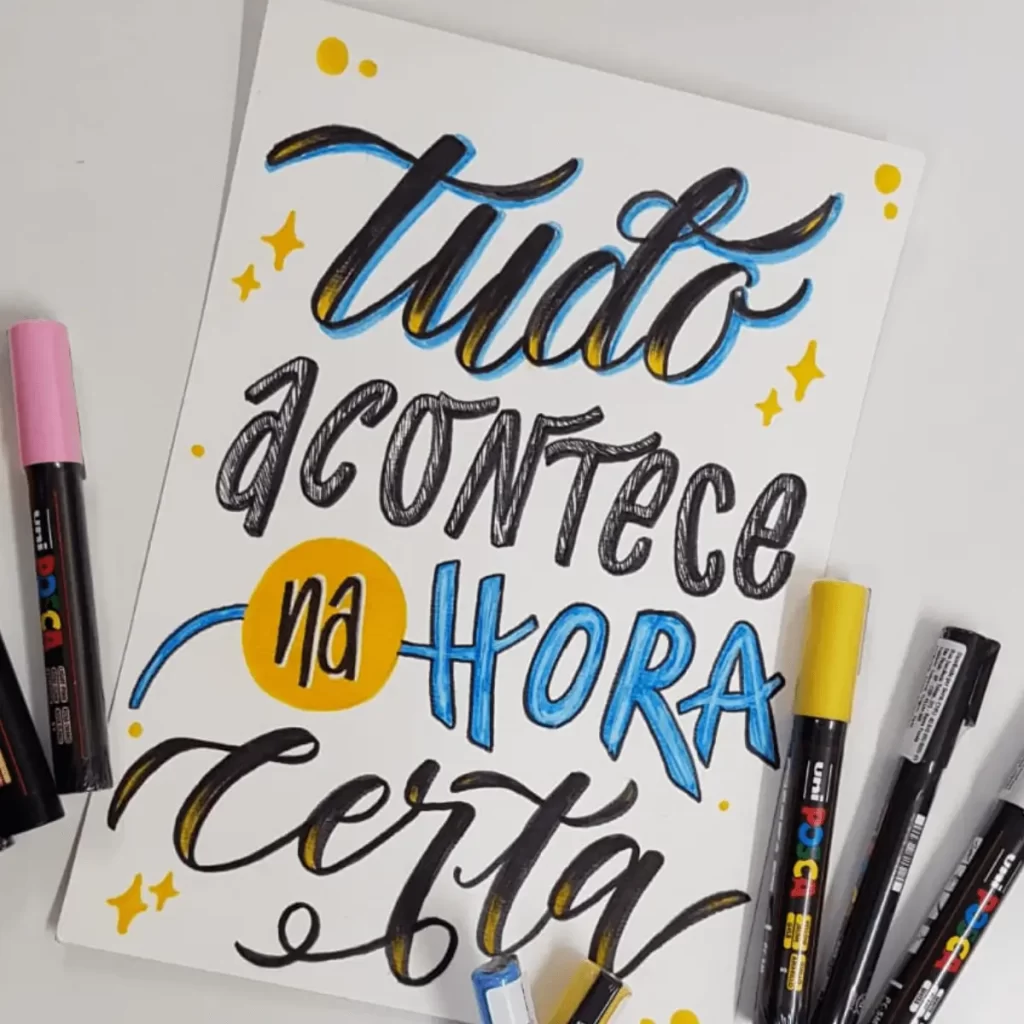 tudo
acontece
na HORA
certa
uni POSCA
uni POSCA
uni POSCA